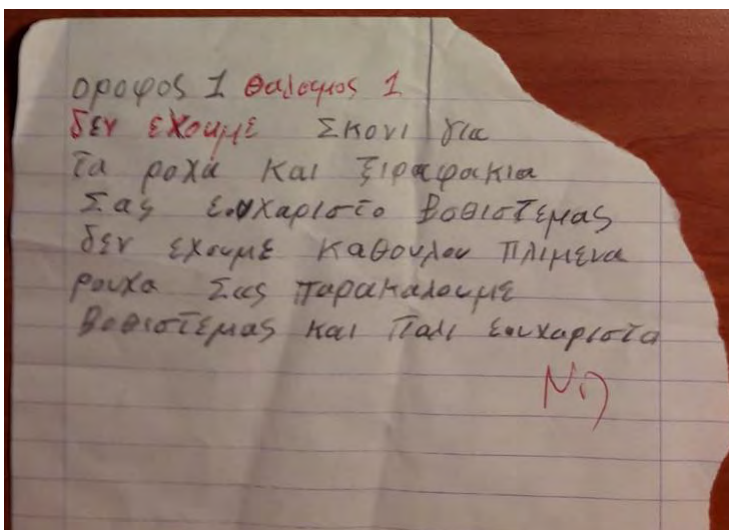 οροφος 1 θαλαμος 1
δεν εχουμε Σκονι για
τα ροχα και ξιραφακια
Σας ευχαριστο Βοθιστεμας
δεν εχουμε καθουλου πλιμενα
ρουχα Σας παρακαλουμε
Βοθιστεμας και παλι ευχαριστα